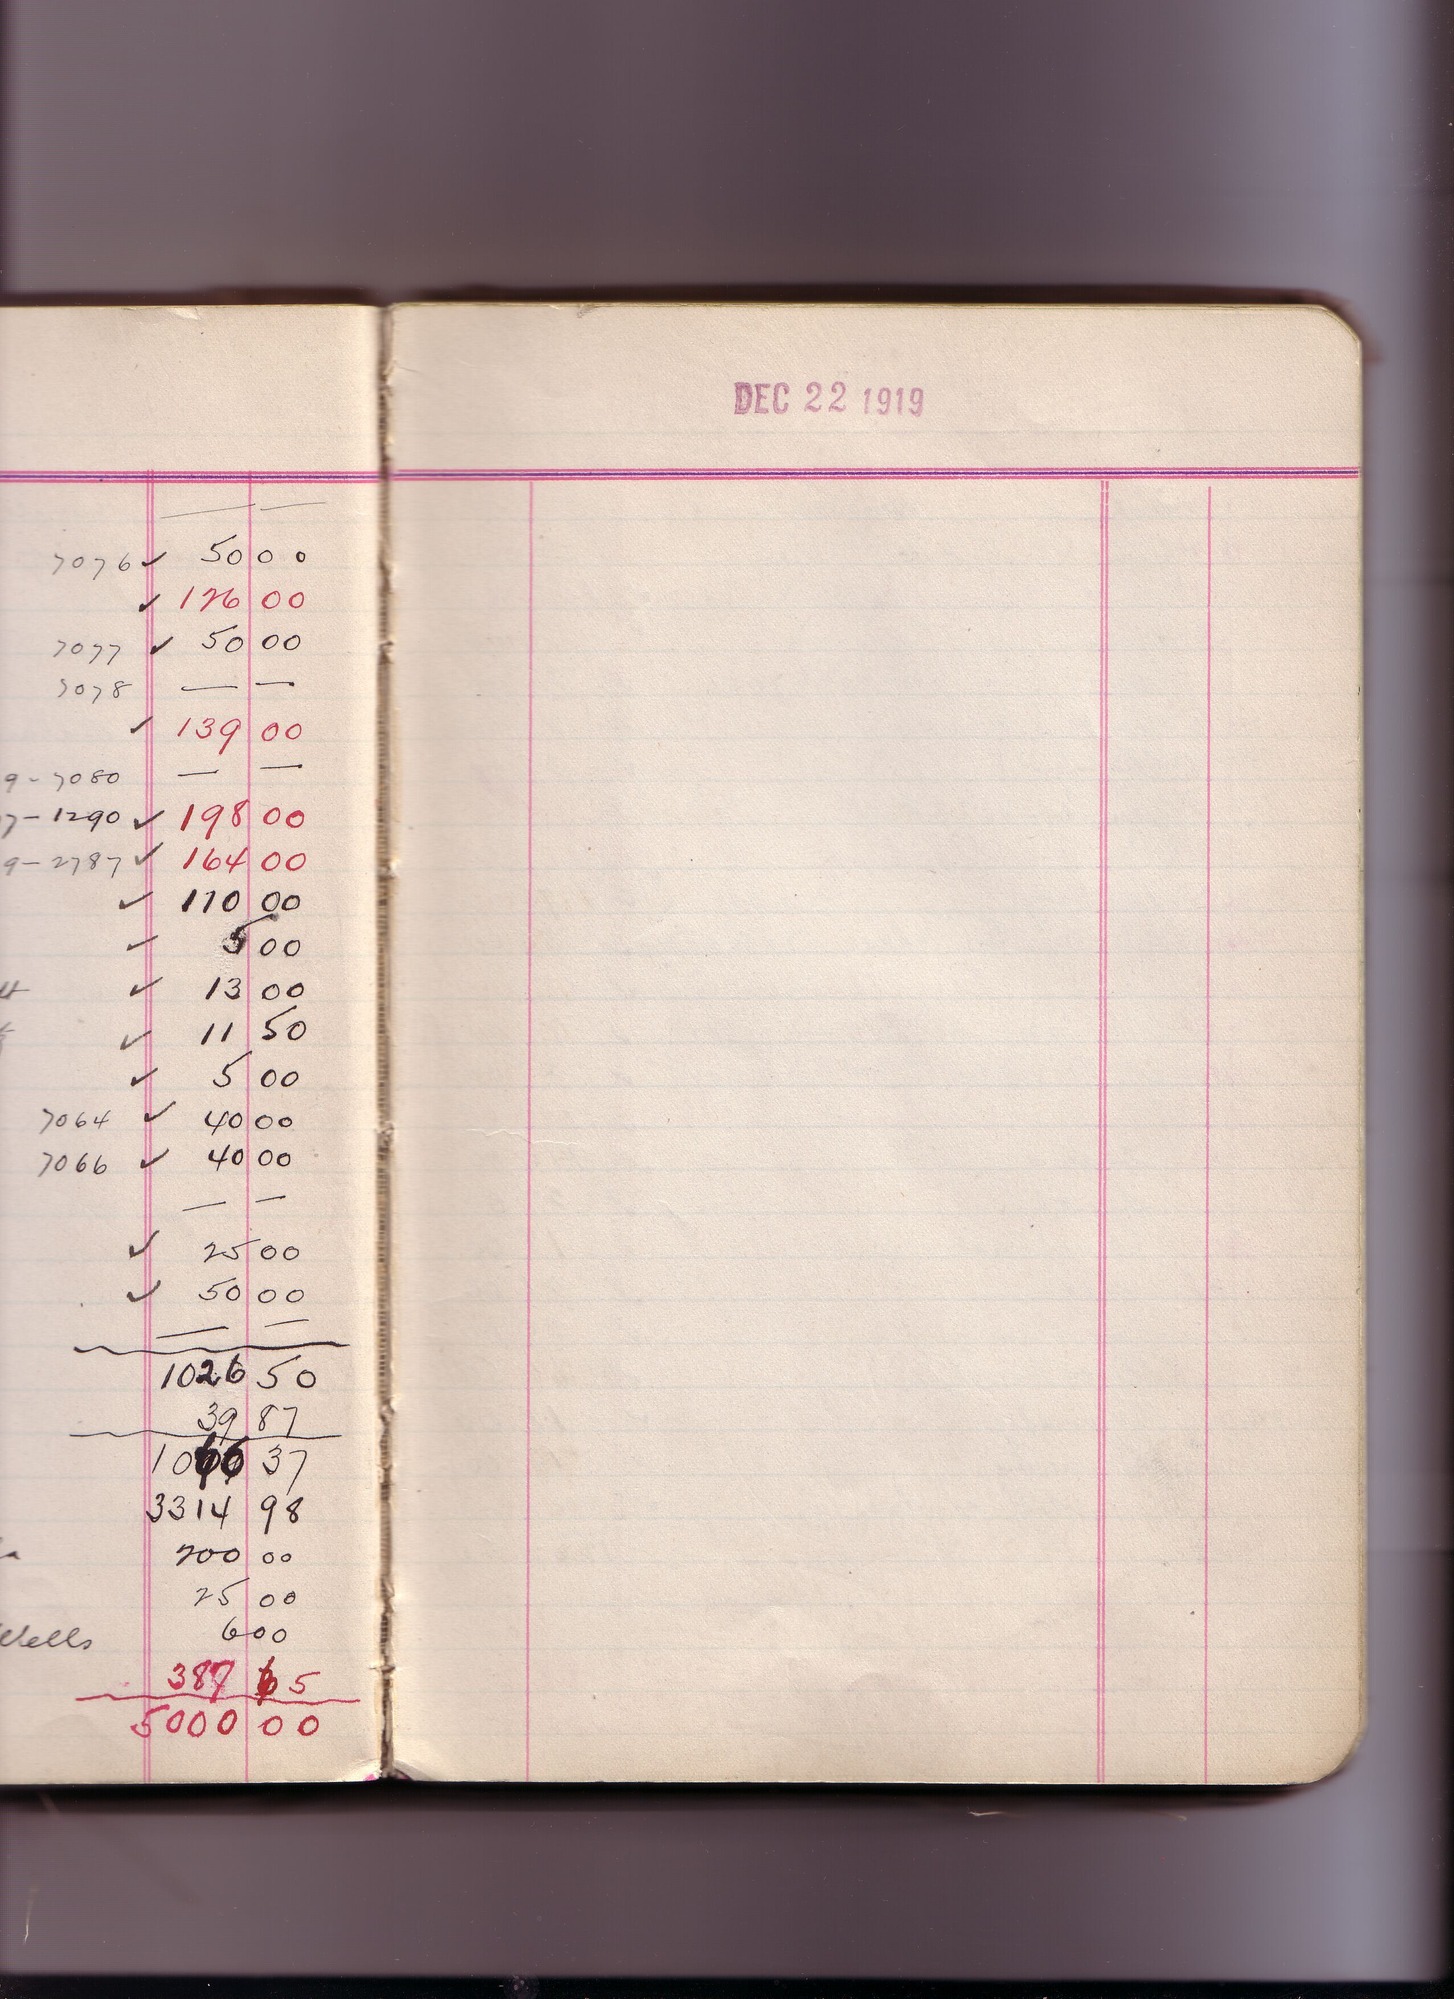 7076 ✓ 50 00
✓ 126 00
7077 ✓ 50 00
7078 — —
✓ 139 00
9-7080 — —
7-1290 ✓ 198 00
9-2787 ✓ 164 00
✓ 110 00
✓ 5 00
✓ 13 00
✓ 11 50
✓ 5 00
7064 ✓ 40 00
7066 ✓ 40 00
— —
✓ 25 00
✓ 50 00
— —
1026 50
39 87
1066 37
3314 98
200 00
25 00
Wells 6 00
387 65
5000 00
DEC 22 1919